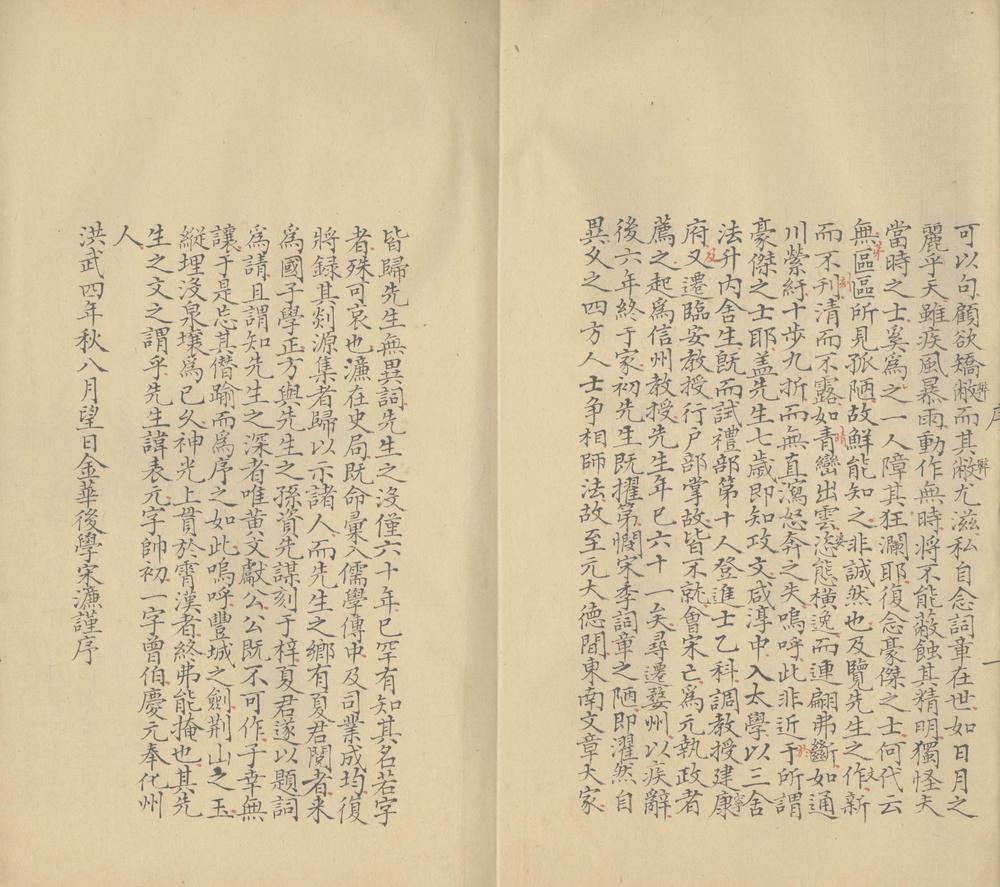 序
一
可以句顧欲矯敝而其敝尤滋私自念詞章在世如日月之
麗乎天雖疾風暴雨動作無時將不能蔽蝕其精明獨怪夫
當時之士奚爲之一人障其狂瀾耶復念豪傑之士何代云
無區區所見孤陋故鮮能知之非誠然也及覽先生之作新
而不刋清而不露如青巒出雲恣態橫逸而連翩弗斷如通
川縈紆十步九折而無直瀉怒奔之失嗚呼此非近于所謂
豪傑之士耶盖先生七歲即知攻文咸淳中入太學以三舍
法升内舍生旣而試禮部第十人登進士乙科調教授建康
府又遷臨安教授行户部掌故皆不就會宋亡爲元執政者
薦之起爲信州教授先生年巳六十一矣尋遷婺州以疾辭
後六年終于家初先生既擢第憫宋季詞章之陋即濯然自
異久之四方人士争相師法故至元大德間東南文章大家
皆歸先生無異詞先生之沒僅六十年巳罕有知其名若字
者殊可哀也濂在史局既命彙入儒學傳中及司業成均復
將録其剡源集者歸以示諸人而先生之鄉有夏君閱者来
爲國子學正方與先生之孫資先謀刻于梓夏君遂以題詞
爲請且謂知先生之深者唯黄文獻公公既不可作子幸無
讓于是忘其僭踰而爲序之如此嗚呼豐城之劍荆山之玉
縱埋沒泉壤爲已久神光上貫於霄漢者終弗能掩也其先
生之文之謂乎先生諱表元字帥初一字曾伯慶元奉化州
人
洪武四年秋八月望日金華後學宋濂謹序